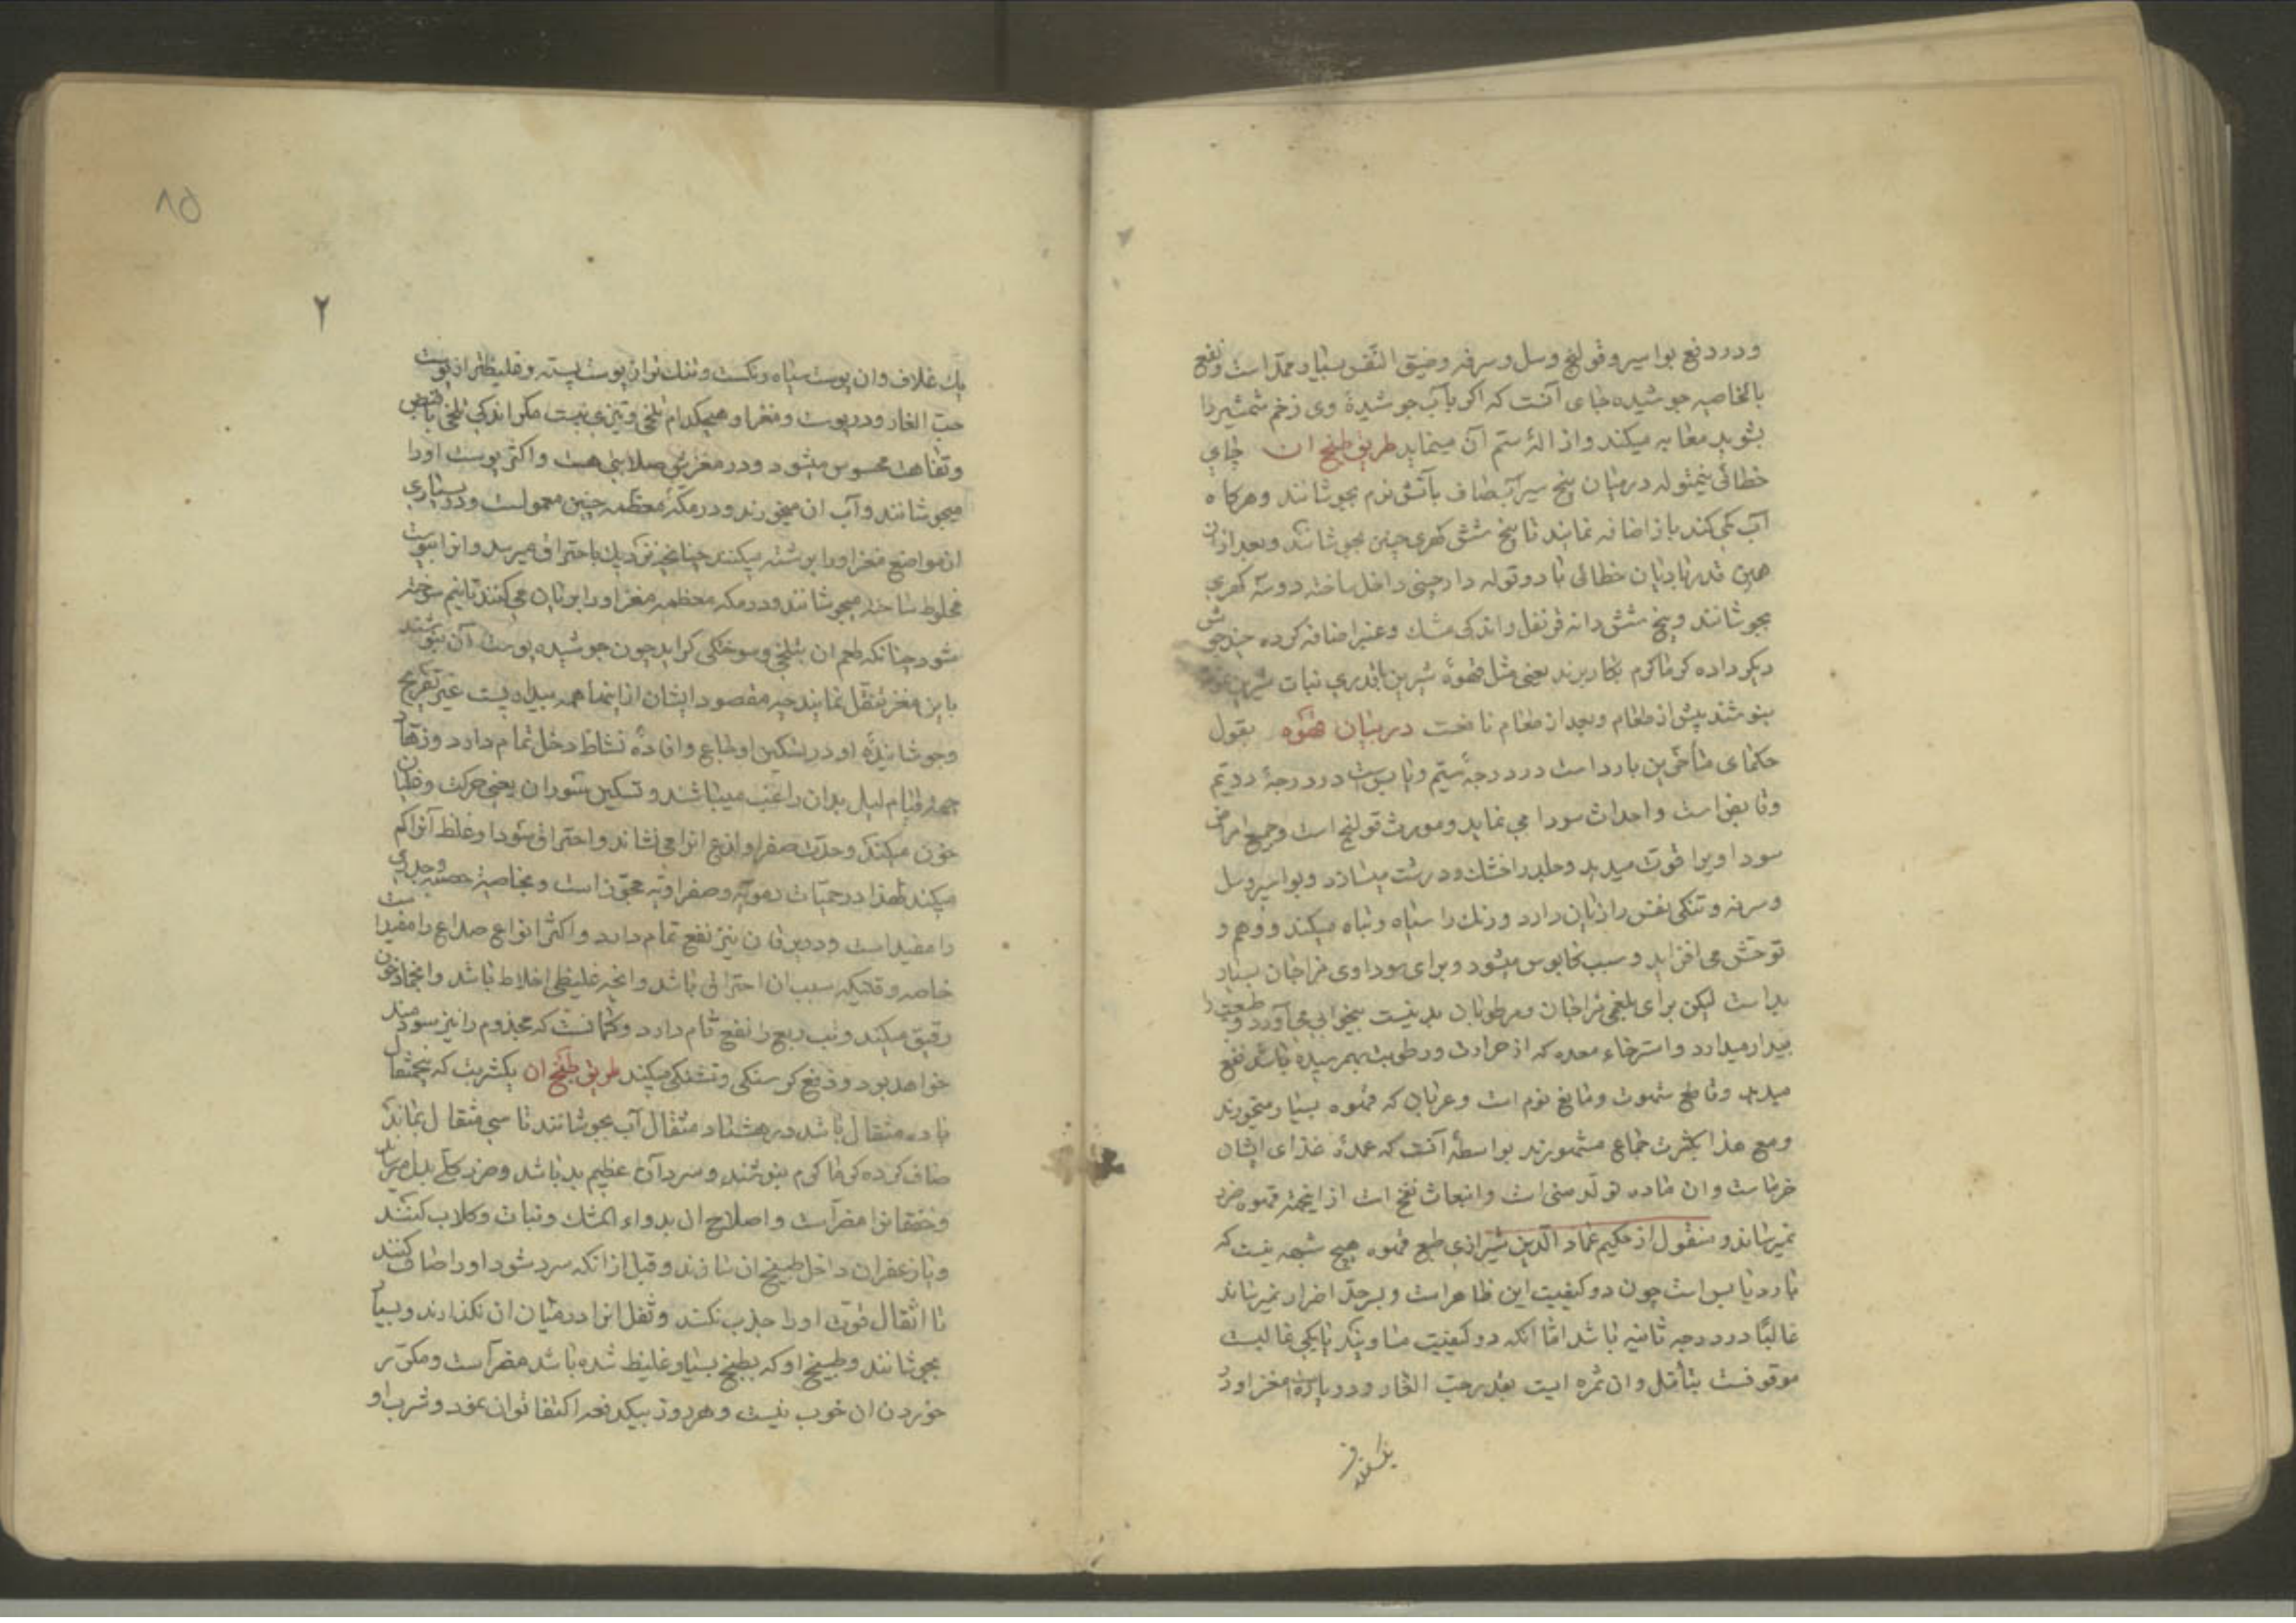 و در دفع بواسیر و قولنج و سل و سرفه و ضیق النفس بسیار ممد است و نفع
بالخاصیه جوشیده چای آنست که اکر بآب جوشیدهٔ وی زخم شمشیر را
بشوید معاینه میکند و ازالهٔ ستم آن مینماید طریق طبخ ان چای
خطائی نیمتوله در میان پنج سیر آبصاف بآتش نرم بجوشانند و هرکاه
آب کمی کند باز اضافه نمایند تا پنج شش کهری چنین بجوشانند و بعد ازان
همین قدر بادیان خطائی با دو توله دارچینی داخل ساخته دو سه کهری
بجوشانند و پنج شش دانه قرنفل و اندکی مشک و عنبر اضافه کرده چند جوش
دیکر داده کرماکرم بکار برند یعنی مثل قهوهٔ شیرین باقدری نبات شیرین
بنوشند پیش از طعام و بعد از طعام تا تحت در بیان قهوه بقول
حکمای متأخرین بارد است در درجهٔ سیّم و یابس است در درجهٔ دویّم
و قابض است و احداث سودا می نماید و مورث قولنج است و جمیع امراض
سوداویرا قوت میدهد و جلد را خشک و درشت میسازد و بواسیر و سل
و سرفه و تنکی نفس را زیان دارد و رنک را سیاه و تباه میکند و وهم و
توحش می افزاید و سبب کابوس میشود و برای سوداوی مزاجان بسیار
بد است لیکن برای بلغمی مزاجان و مرطوبان بد نیست بیخوابی می آورد و طبیعت را
بیدار میدارد و استرخاء معده که از حرارت و رطوبت بهم رسیده باشد نفع
میدهد و قاطع شهوت و مانع نوم است و عربان که قهوه بسیار میخورند
و مع هذا بکثرت جماع مشهورند بواسطهٔ آنست که عمدهٔ غذای ایشان
خرماست و ان ماده تولّد منی است و انبعاث نفخ است از اینجهة قهوه ضرر
نمیرساند و منقول از حکیم عماد الدین شیرازی طبع قهوه هیچ شبهه نیست که
بارد یابس است چون دو کیفیت این ظاهر است و بسرحدّ اضرار نمیرساند
غالبًا در درجه ثانیه باشد امّا انکه دو کیفیت مساویند یا یکی غالبست
موقوفست بتأمّل و ان ثمره ایست بقدر حبّ الغار و دو پاره است مغز او در
یک غلاف و ان پوست سیاه رنکست و تنک تر از پوست پسته و غلیظتر از پوست
حبّ الغار و در پوست و مغز او هیچکدام تلخی و تیزی نیست مکر اندکی تلخی با قبض
و تفاهت محسوس میشود و در مغزش صلابتی هست و اکثر پوست اورا
میجوشانند و آب ان میخورند و در مکّهٔ معظّمه چنین معمولست و در بسیاری
از مواضع مغز اورا برشته میکنند چنانچه نزدیک باحتراق میرسد و انرا بپوست
مخلوط ساخته میجوشانند و در مکه معظمه مغز اورا بریان می کنند تا نیم سوخته
شود چنانکه طعم ان بتلخی و سوختکی کراید چون جوشیده پوست آن بنوشند
باین مغز تنقّل نمایند چه مقصود ایشان از اینها همه بیداریست غیر تفریح
و جوشانیدهٔ او در تسکین اوجاع و افادهٔ نشاط دخل تمام دارد و زهّاد
جهة قیام لیل بدان راغب میباشند و تسکین ثوران یعنی حرکت و غلیان
خون میکند و حدّت صفرا و لذع انرا می نشاند و احتراق سودا و غلظ آنرا کم
میکند لهذا در حمیّات دمویّه و صفراویّه مجوّز است و بخاصیة حصبه و جدری
را مفید است و در یرقان نیز نفع تمام دارد و اکثر انواع صداع را مفید است
خاصه وقتیکه سبب ان احتراقی باشد و ابخره غلیظی اخلاط باشد و انجماد خون
رقیق میکند و تب ربع را نفع تام دارد و کمانست که مجذوم را نیز سودمند
خواهد بود و دفع کرسنکی و تشنکی میکند طریق طبخ ان یکشربت که پنجمثقال
یا ده مثقال باشد در هشتاد مثقال آب بجوشانند تا سی مثقال بماند
صاف کرده کرماکرم بنوشند و سرد آن عظیم بد باشد و ضرر کلّی بدل میرساند
و خفقانرا مضرّ است و اصلاح ان بدواء المشک و نبات و کلاب کنند
و یا زعفران داخل طبیخ ان سازند و قبل از انکه سرد شود اورا صاف کنند
تا اثقال قوّت اورا جذب نکند و ثفل انرا در میان ان نکذارند و بسیار
بجوشانند و طبیخ او که بطبخ بسیار غلیظ شده باشد مضرّ است و مکرّر
خوردن ان خوب نیست و هر روز بیکدفعه اکتفا توان نمود و شرب او
۲
۸۵